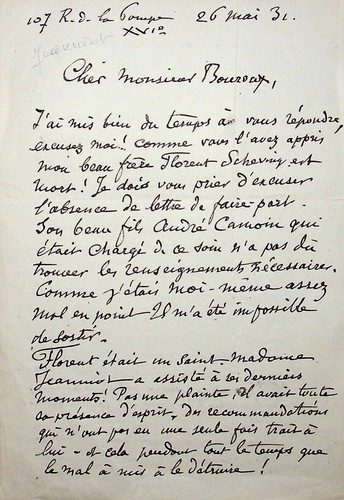 107 R. de la Pompe 26 mai 31.
XVIe
Jeanniot
Cher Monsieur Bouroux,
J'ai mis bien du temps à vous répondre,
excusez moi!! comme vous l'avez appris
mon beau frère Florent est
mort! Je dois vous prier d'excuser
l'absence de lettre de faire-part.
Son beau fils André Camoin qui
était chargé de ce soin n'a pas dû
trouver les renseignements nécessaires.
Comme j'étais moi-même assez
mal en point Il m'a été impossible
de sortir.
Florent était un Saint. Madame
Jeanniot a assisté à ses derniers
moments! Pas une plainte, il avait toute
sa présence d'esprit, des recommandations
qui n'ont pas eu une seule fois trait à
lui - et cela pendant tout le temps que
le mal à mis à le détruire!